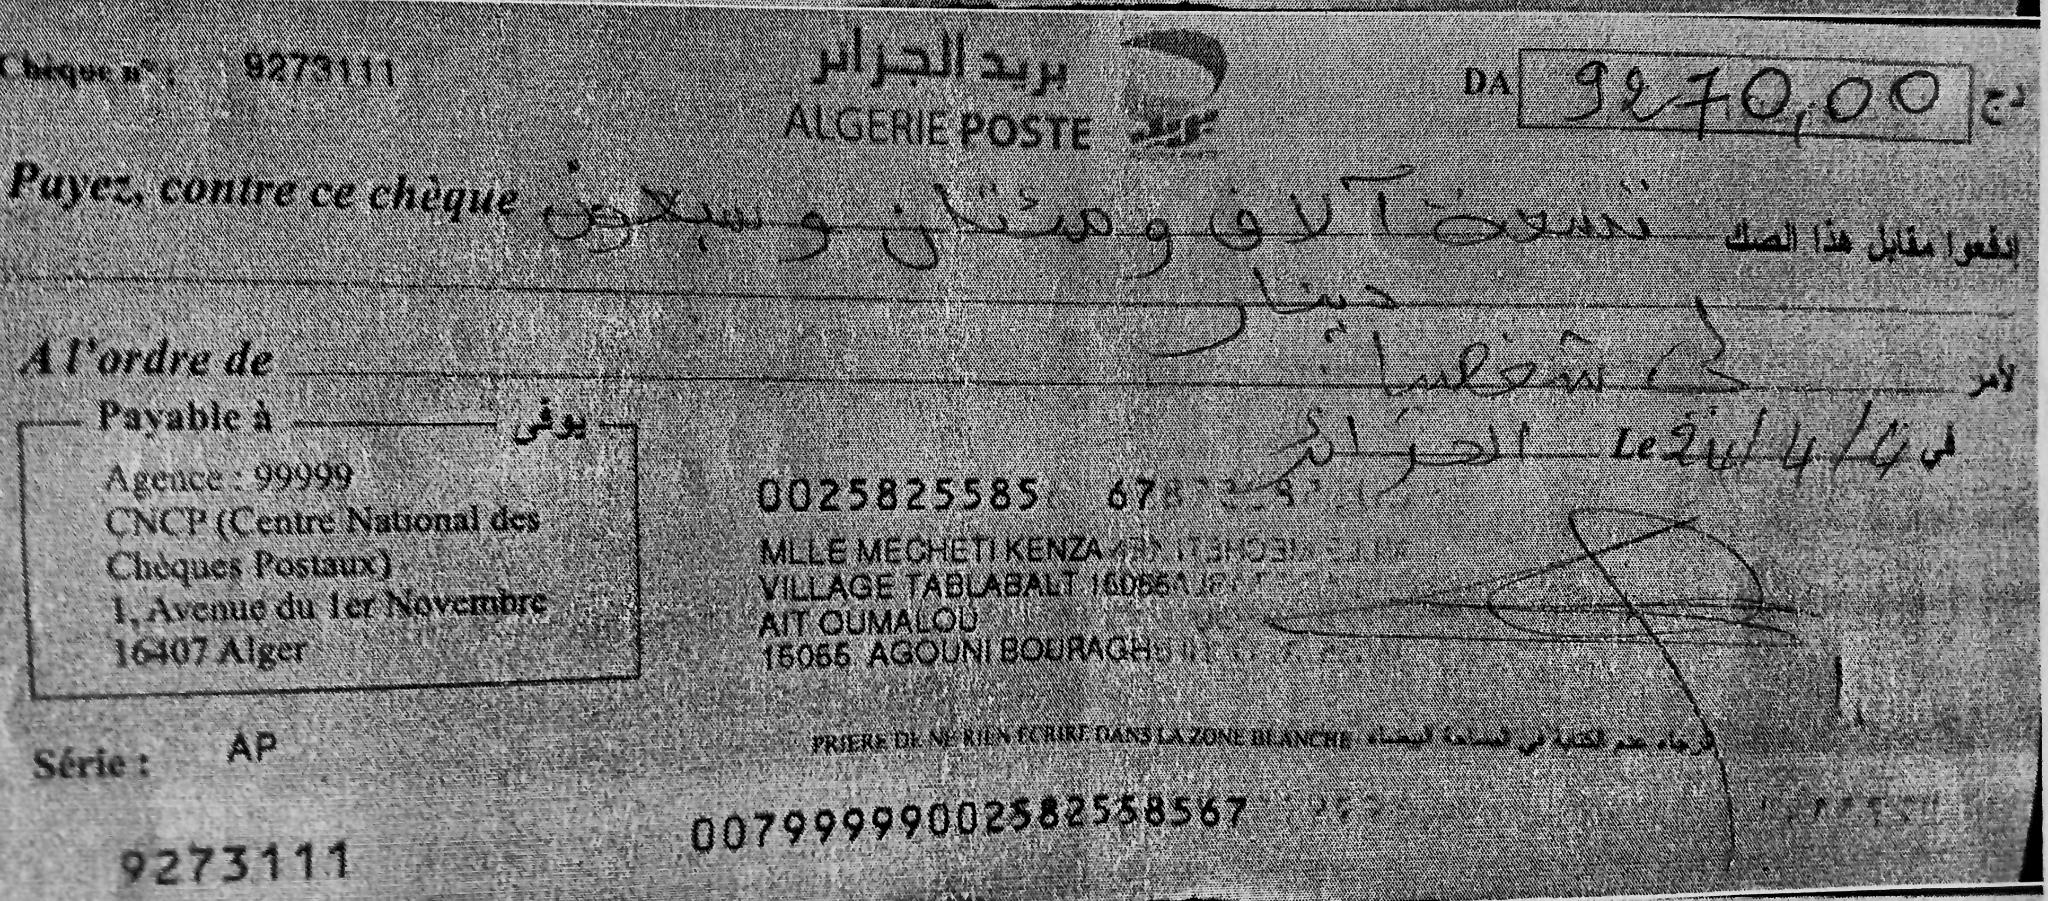 Chèque n° : 9273111
بريد الجزائر
ALGERIE POSTE
DA 9270,00 دج
Payez, contre ce chèque تسعة آلاف و مئتان و سبعون إدفعوا مقابل هذا الصك
دينار
A l'ordre de لي شخصيا لأمر
Payable à يوفى
Agence : 99999
CNCP (Centre National des
Chèques Postaux)
1, Avenue du 1er Novembre
16407 Alger
الجزائر Le 24/4/ في
0025825585 67
MLLE MECHETI KENZA
VILLAGE TABLABALT 15055
AIT OUMALOU
15055 AGOUNI BOURAGH
Série : AP
PRIERE DE NE RIEN ECRIRE DANS LA ZONE BLANCHE الرجاء عدم الكتابة في المساحة البيضاء
00799999002582558567
9273111